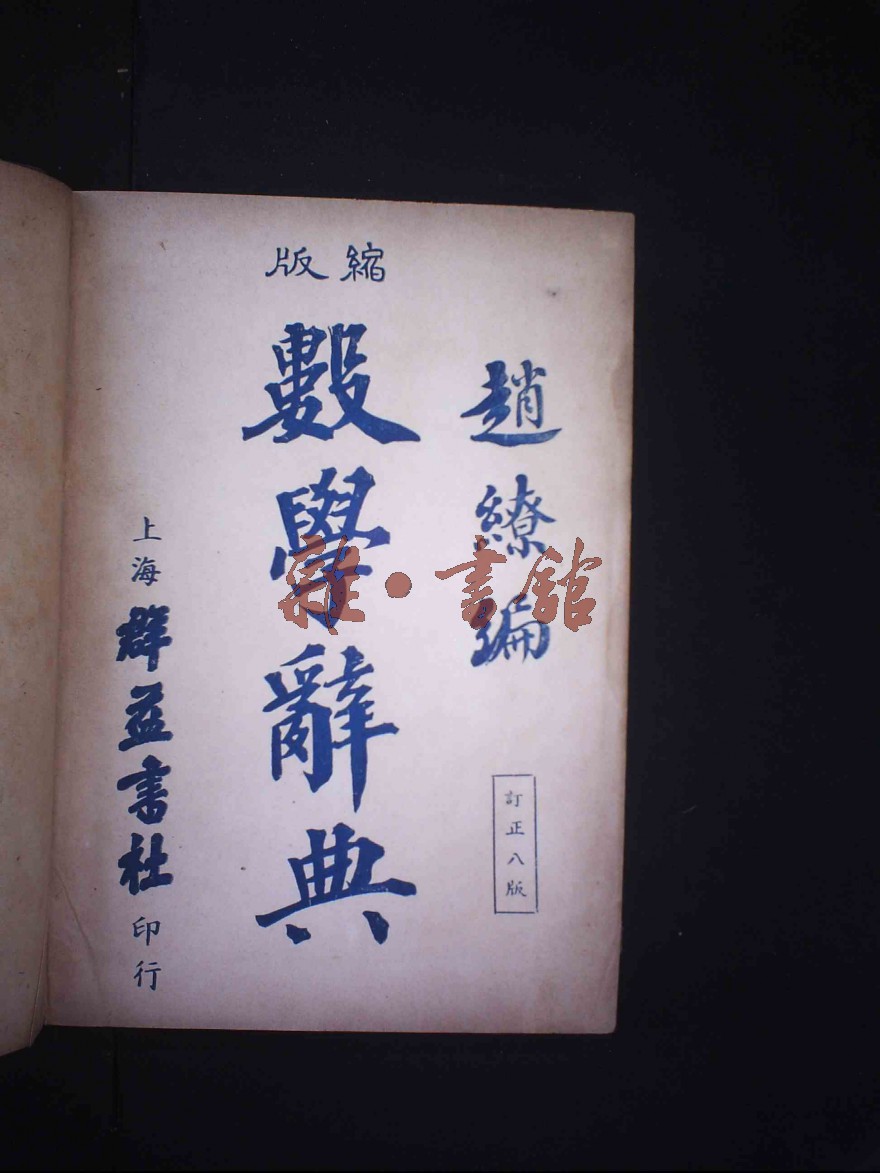 縮版
趙繚編
數學辭典
訂正八版
上海群益書社印行
雜·書館